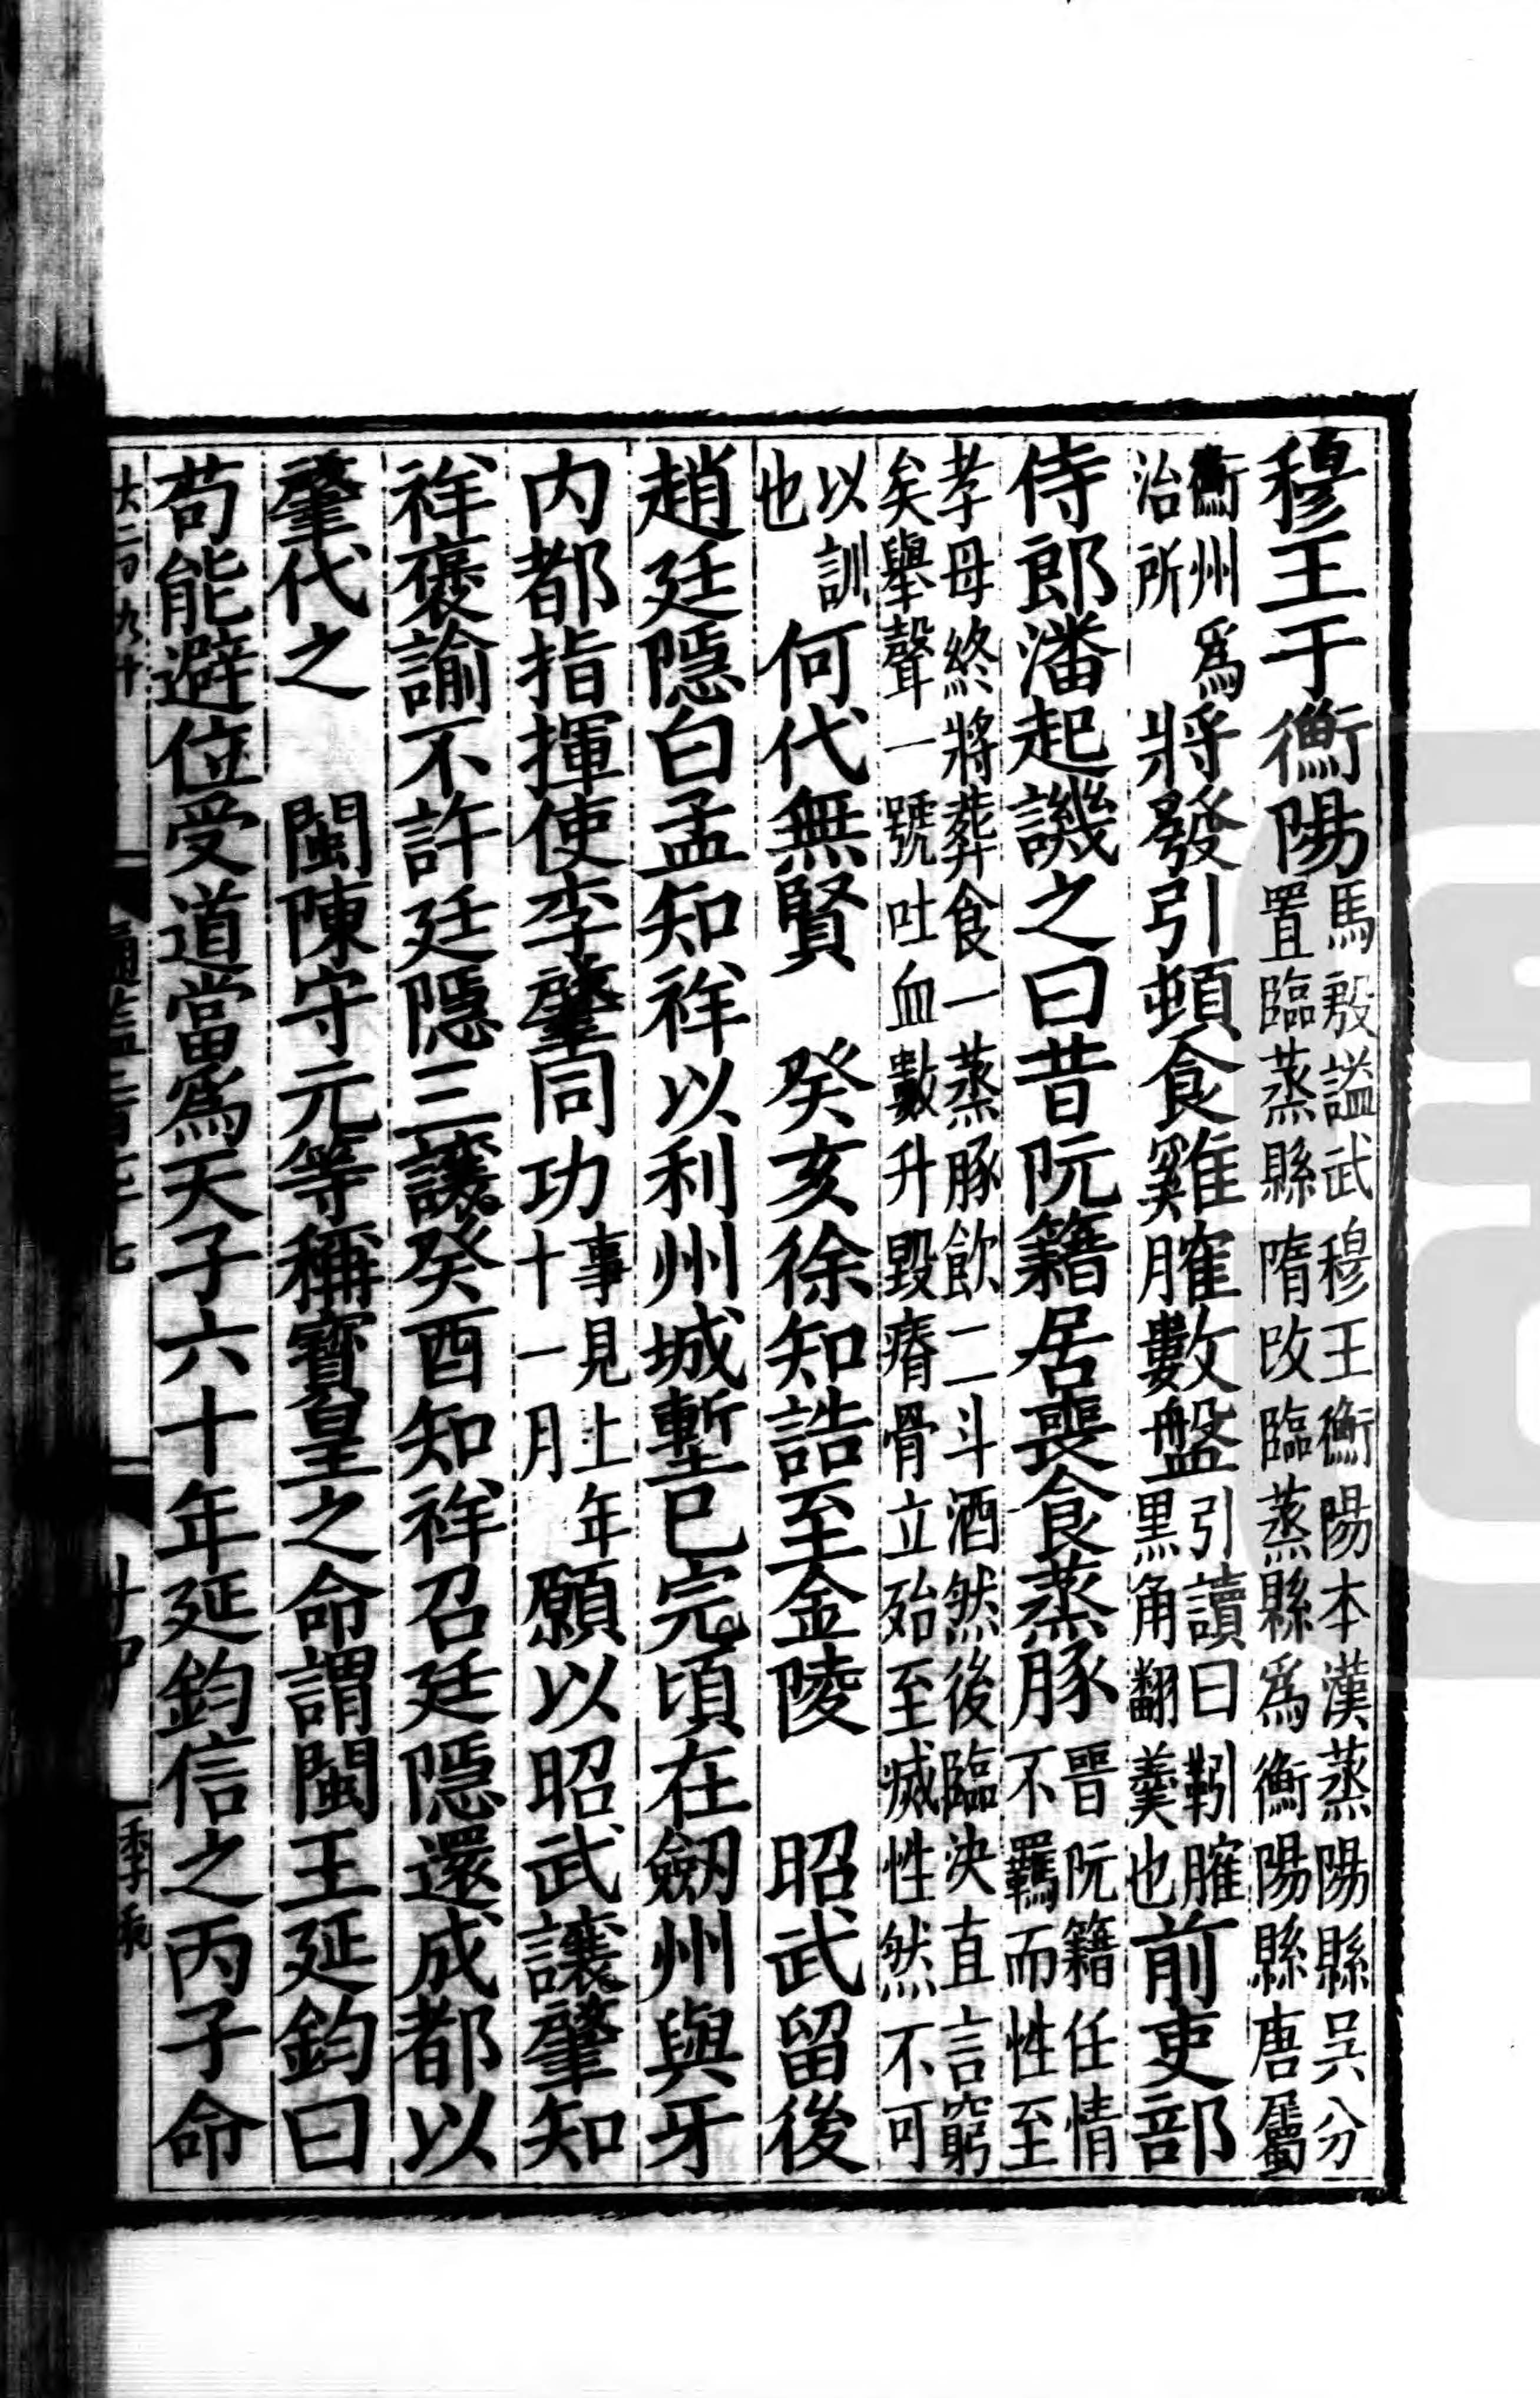 穆王于衡陽馬殷謚武穆王衡陽本漢蒸陽縣吳分置臨蒸縣隋改臨蒸縣爲衡陽縣唐屬
衡州爲治所將發引頓食雞臛數盤引讀曰靷臛黒角翻羹也前吏部
侍郎潘起譏之曰昔阮籍居喪食蒸豚晉阮籍任情不羈而性至
孝母終將葬食一蒸豚飲二斗酒然後臨決直言窮矣舉聲一號吐血數升毀瘠骨立殆至滅性然不可
以訓也何代無賢　癸亥徐知誥至金陵　昭武留後
趙廷隱白孟知祥以利州城塹已完頃在劒州與牙
内都指揮使李肇同功事見上年十一月願以昭武讓肇知
祥褒諭不許廷隱三讓癸酉知祥召廷隱還成都以
肇代之　閩陳守元等稱寶皇之命謂閩王延鈞曰
苟能避位受道當爲天子六十年延鈞信之丙子命